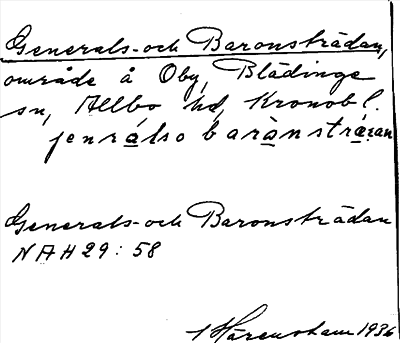 Generals- och Baronsträdan,
område å Oby, Blädinge
sn, Allbo hd, Kronob l.
jenrálso barànstrá̱ran
Generals- och Baronsträdan
NAH 29: 58
Härensham 1936